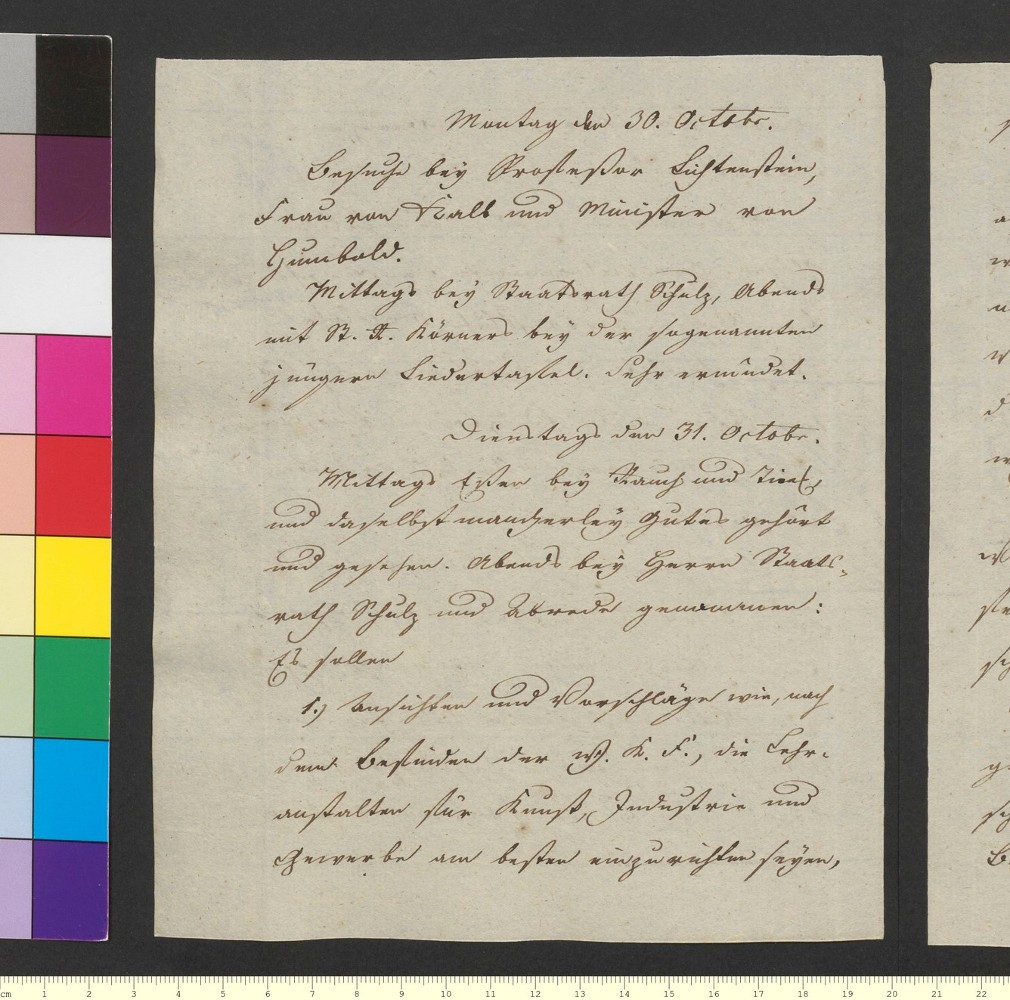 Montag den 30. Octobr.
Besuche bey Professor Lichtenstein,
Frau von Kalb und Minister von
Humbold.
Mittags bey Staatsrath Schulz, Abends
mit St. R. Körners bey der sogenannten
jüngern Liedertaffel. Sehr ermüdet.
Dienstags den 31. Octobr.
Mittags Essen bey Rauch und Tieck,
und daselbst mancherley Gutes gehört
und gesehen. Abends bey Herrn Staats-
rath Schulz und Abrede genommen:
Es sollen
1.) Ansichten und Vorschläge wie, nach
dem Befinden der W. K. F., die Lehr-
anstalten für Kunst, Industrie und
Gewerbe am besten einzurichten seyen,
cm 1 2 3 4 5 6 7 8 9 10 11 12 13 14 15 16 17 18 19 20 21 22